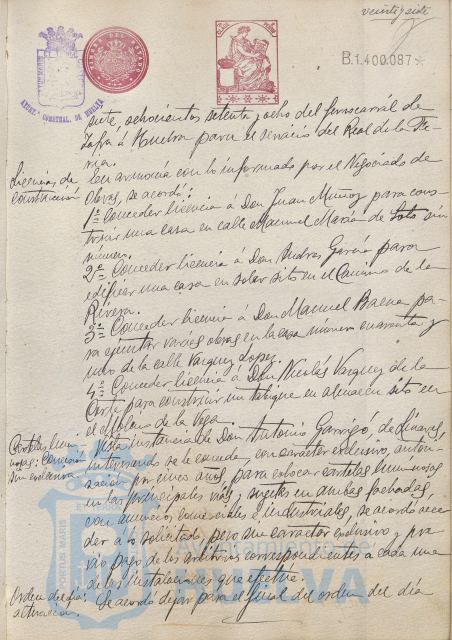 veintisiete
B.1.400.087*
AYUNTº CONSTNAL. DE HUELVA
siete, ochocientos setenta y ocho del ferrocarril de
Zafra á Huelva para el servicio del Real de la Fe-
ria.
Licencias de
construcción
En armonía con lo informado por el Negociado de
Obras, se acordó:
1º Conceder licencia á Don Juan Muñoz para cons-
truir una casa en calle Manuel María de Soto sin
número.
2º Conceder licencia á Don Andrés García para
edificar una casa en solar sito en el Camino de la
Rivera.
3º Conceder licencia á Don Manuel Baena pa-
ra ejecutar varias obras en la casa número cuarenta y
uno de la calle Vazquez Lopez.
4º Conceder licencia á Don Nicolás Vazquez de la
Corte para construir un tabique en almacen sito en
el Molino de la Vega
Carteles lumi-
nosos: Concesión
sin exclusiva.
Vista instancia de Don Antonio Garrigó, de Linares,
interesando se le conceda, con carácter exclusivo, autori-
zacion por cinco años, para colocar carteles luminosos
en las principales vías, sujetos en ambas fachadas,
con anuncios comerciales e industriales, se acordó acce-
der á lo solicitado, pero sin carácter exclusivo y pre-
vio pago de los arbitrios correspondientes a cada una
de las instalaciones que efectúe.
Orden del día:
alteración.
Se acordó dejar para el final del orden del día
PORTUS MARIS
HUELVA